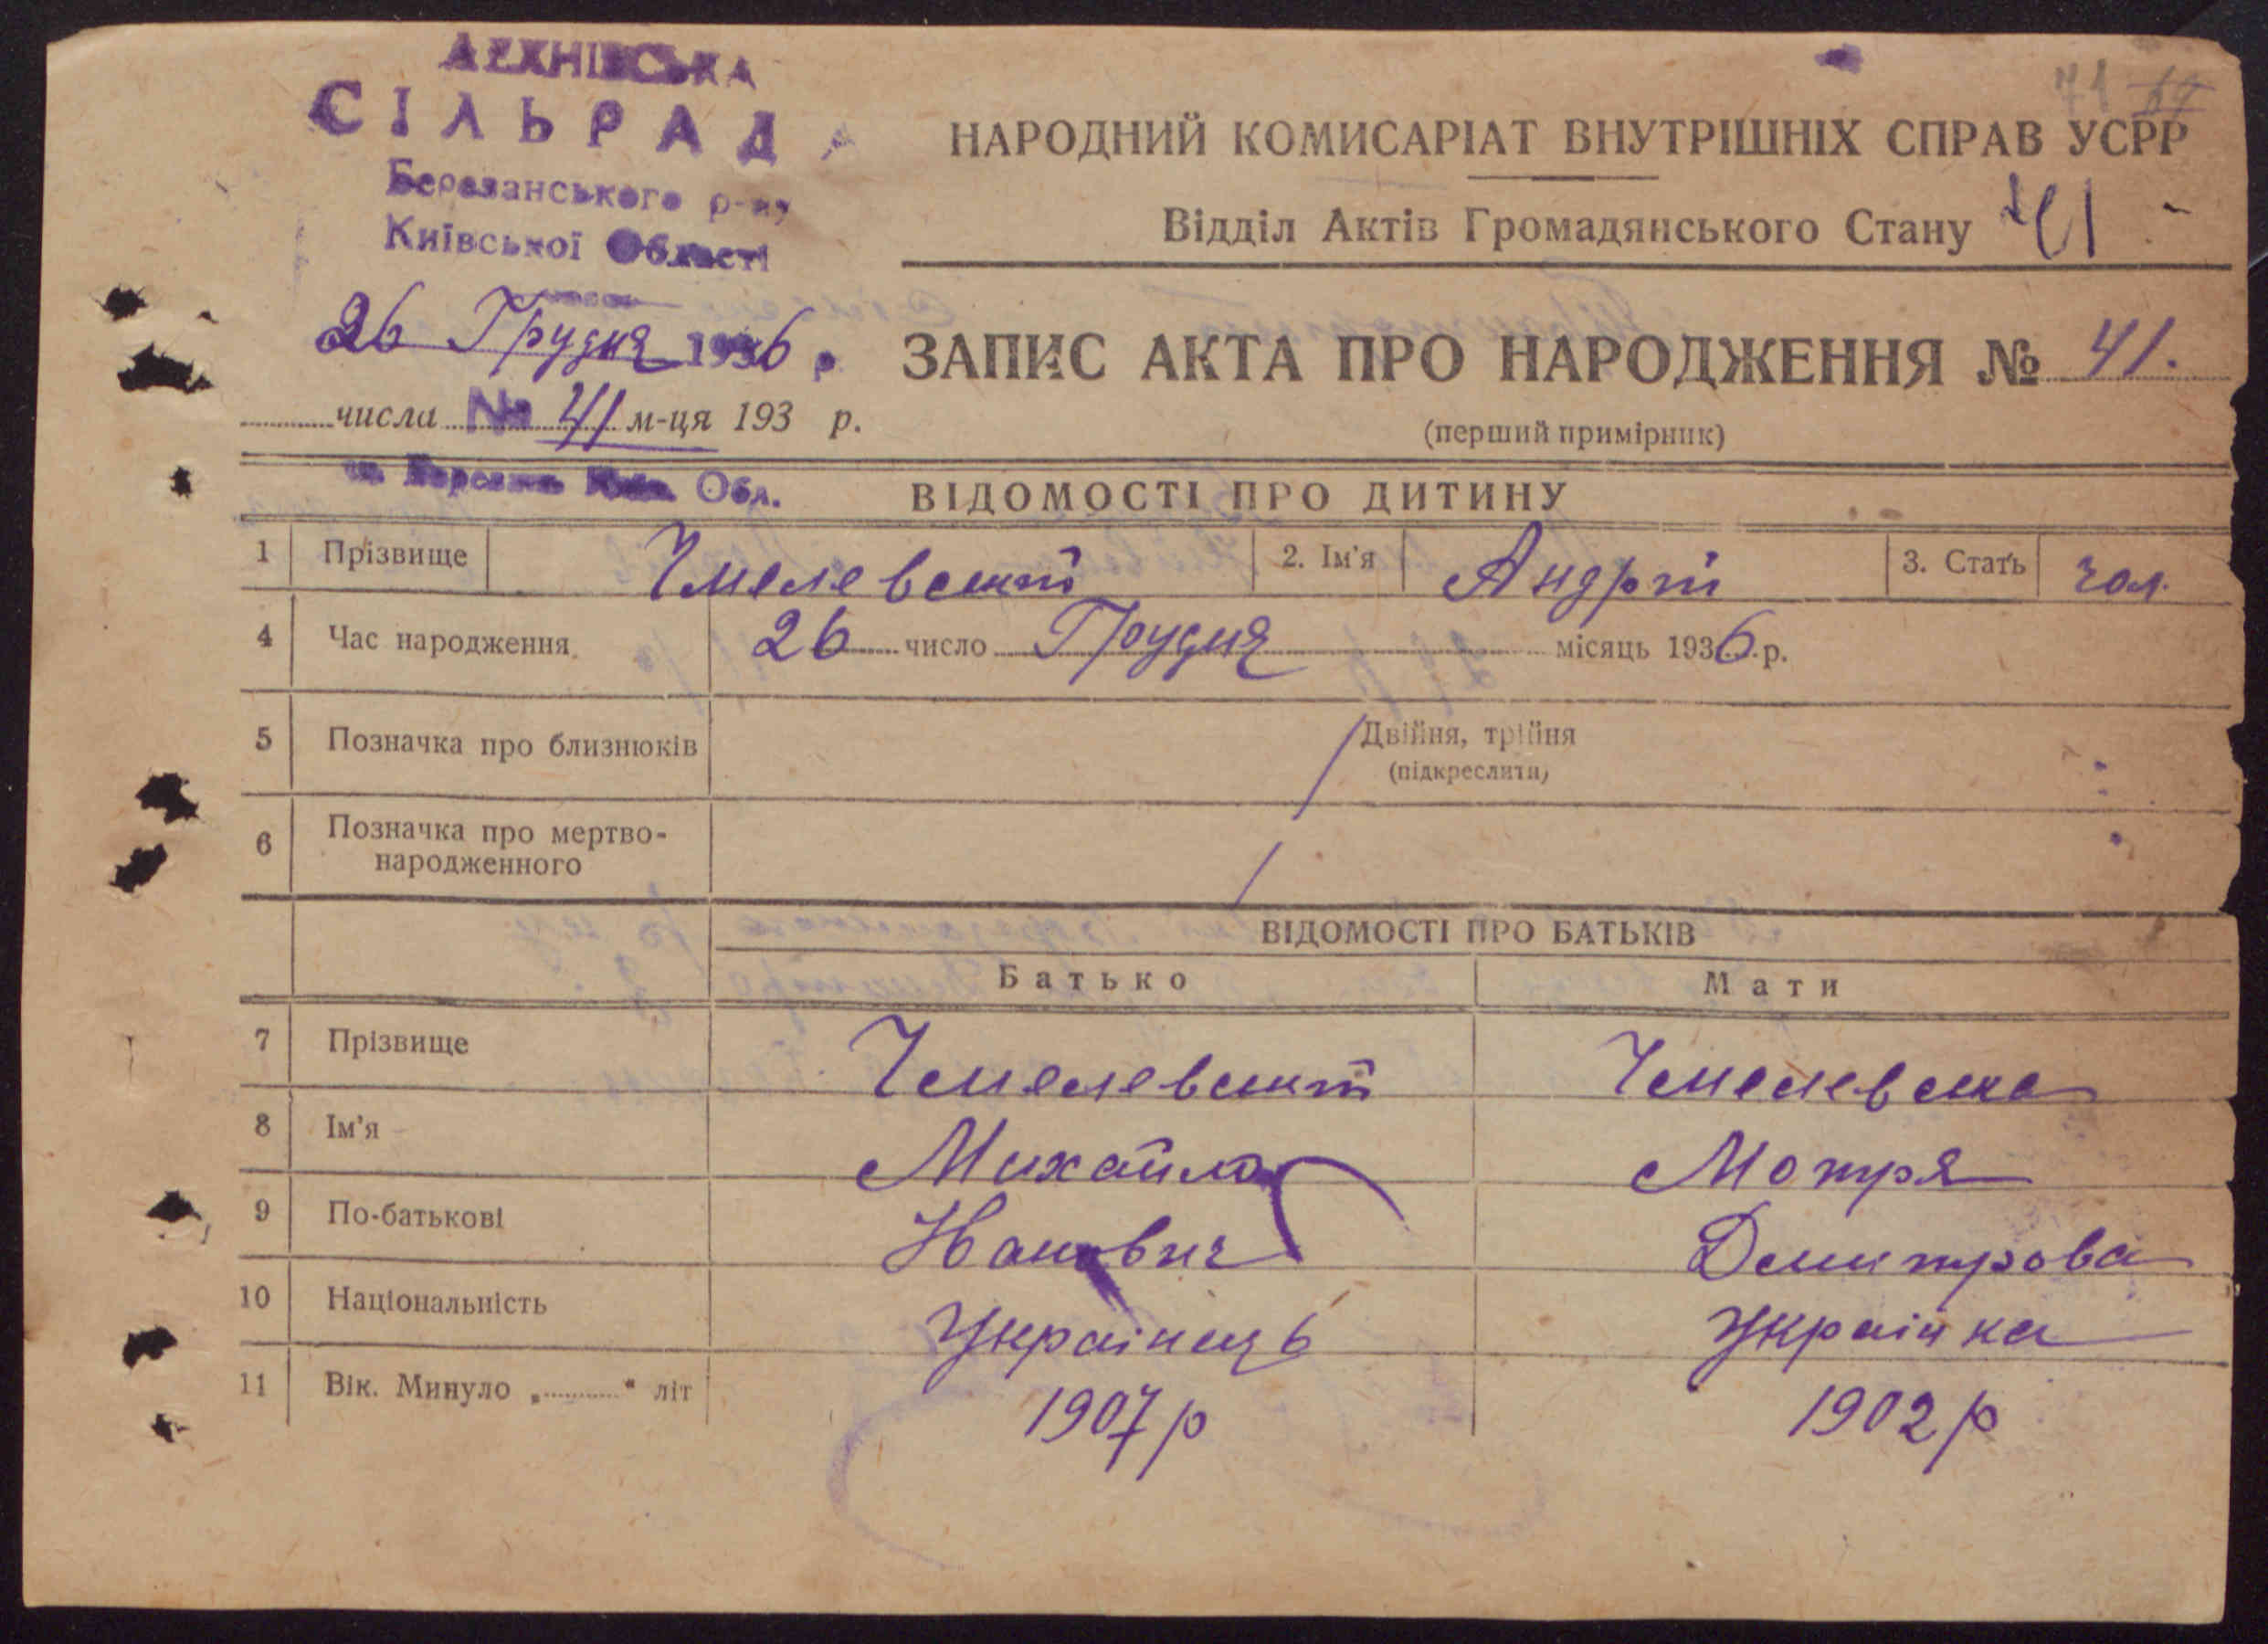 СІЛЬРАДА
Березанського р-ну
Київської Області
71 69
НАРОДНИЙ КОМИСАРІАТ ВНУТРІШНІХ СПРАВ УСРР
Відділ Актів Громадянського Стану 41
26 Грудня 1936 р.
ЗАПИС АКТА ПРО НАРОДЖЕННЯ № 41.
числа № 41 м-ця 193 р.
(перший примірник)
Обл.
ВІДОМОСТІ ПРО ДИТИНУ
1 Прізвище Чмелевский 2. Ім'я Андрій 3. Стать чол.
4 Час народження 26 число Грудня місяць 1936 р.
5 Позначка про близнюків Двійня, трійня
(підкреслити)
6 Позначка про мертво-
народженного
ВІДОМОСТІ ПРО БАТЬКІВ
Батько Мати
7 Прізвище Чмелевский Чмелевска
8 Ім'я Михайло Мотря
9 По-батькові Іванович Дмитрова
10 Національність Українець Українка
11 Вік. Минуло „ “ літ 1907 р 1902 р